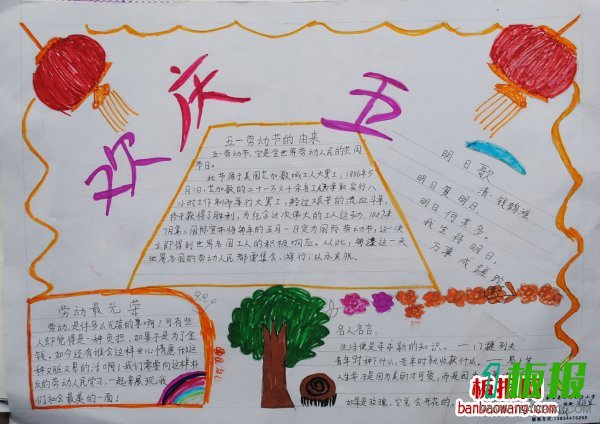 欢庆五一
五一劳动节的由来
五一劳动节,它是全世界劳动人民的共同
节日。
此节源于美国芝加哥城工人大罢工,1886年5
月1日,芝加哥的二十一万六千余名工人为争取实行八
小时工作制而举行大罢工,经过艰苦的流血斗争,
终于获得了胜利。为纪念这次伟大的工人运动,1889年
7月第二国际宣布将每年的五月一日定为国际劳动节,这一决
立即得到世界各国工人的积极响应。从此,每逢这一天
世界各国的劳动人民都要集会,游行,以示庆祝。
明日歌
清·钱鹤滩
明日复明日,
明日何其多。
我生待明日,
万事成蹉跎
劳动最光荣
劳动,是件多么光荣的事啊!可有些
人却觉得是一种负担,如果不是为了金
钱,如今还有谁会这样
种又脏又累的活啊!我们需要向这样
的劳动人民学习,一起来展现我
们社会最美的一面!
名人名言。
生活便是寻求新的知识。——门捷列夫
青年时种下什么,老年时就收获什么。——易卜生
人生
如果是玫瑰,它总会开花的。
板报
板报网
www.banbaowang.com